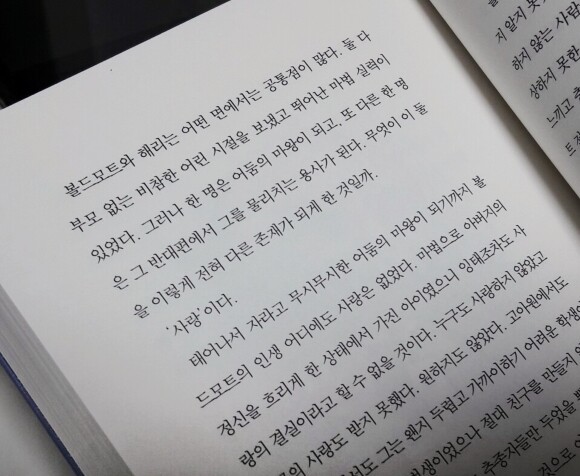 볼드모트와 해리는 어떤 면에서는 공통점이 많다. 둘 다
부모 없는 비참한 어린 시절을 보냈고 뛰어난 마법 실력이
있었다. 그러나 한 명은 어둠의 마왕이 되고, 또 다른 한 명
은 그 반대편에서 그를 물리치는 용사가 된다. 무엇이 이 둘
을 이렇게 전혀 다른 존재가 되게 한 것일까.
'사랑'이다.
태어나서 자라고 무시무시한 어둠의 마왕이 되기까지 볼
드모트의 인생 어디에도 사랑은 없었다. 마법으로 아버지의
정신을 흐리게 한 상태에서 가진 아이였으니 잉태조차도 사
랑의 결실이라고 할 수 없을 것이다. 누구도 사랑하지 않았고
의 사랑도 받지 못했다. 원하지도 않았다. 고아원에서도
그는 왠지 두렵고 가까이하기 어려운 학생
이었으나 절대 친구를 만들지
존자들만 두었을
지 알지 못
하지 않는 사람
상하지 못한
느끼고